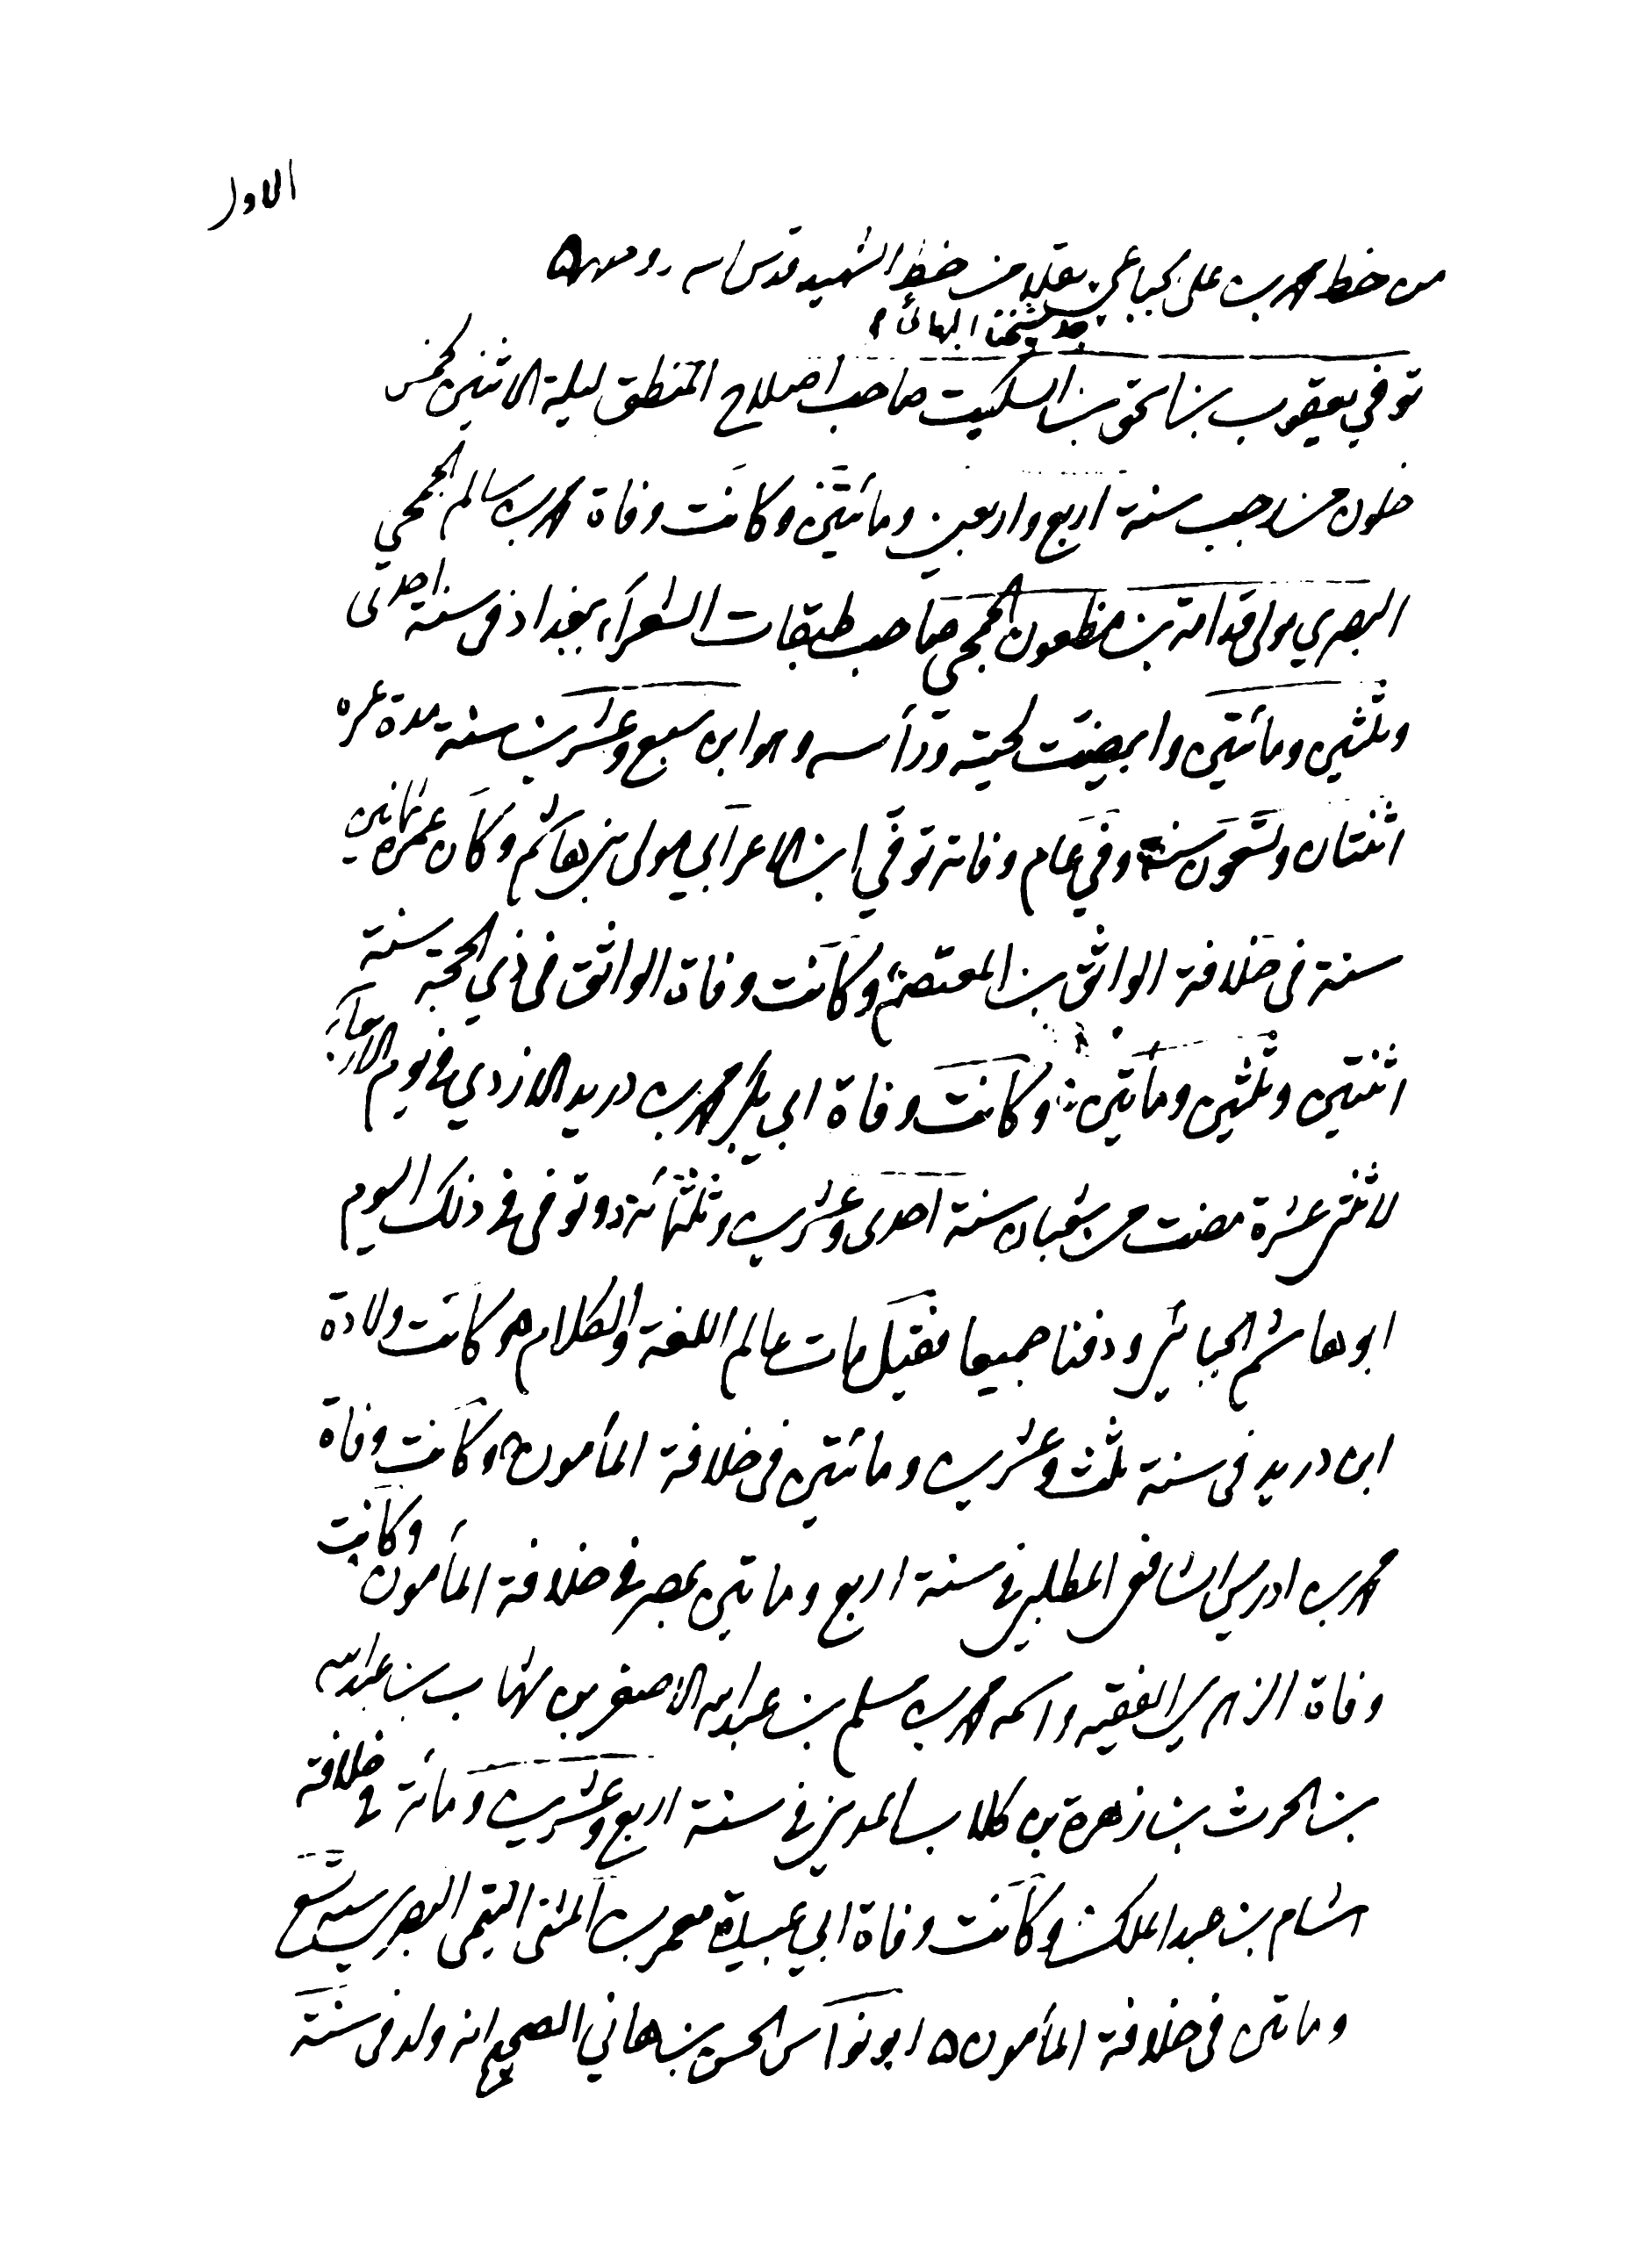 الاول
من خط محمد بن علی الجباعی نقلا من خط الشهید قدس الله روحهما
جد شیخنا البهائی
توفي یعقوب بن اسحق بن السکیت صاحب اصلاح المنطق لیلة الاثنین لخمس
خلون من رجب سنة اربع واربعین ومأتین وکانت وفاة محمد بن سالم الجمحي
البصري مولی قدامة بن مظعون الجمحي صاحب طبقات الشعرآء ببغداد فی سنة احدی
وثلثین ومأتین وابیضت لحیته ورأسه وهو ابن سبع وعشرین سنة مدة عمره
اثنتان وتسعون سنة وفي عام وفاته توفي ابن الاعرابي مولی بنی هاشم وکان عمره ثمانین
سنة فی خلافة الواثق بن المعتصم وکانت وفاة الواثق فی ذي الحجة سنة
اثنتین وثلثین ومأتین وکانت وفاة ابي بکر محمد بن درید الازدي فی یوم الاربعآء
لاثنتی عشرة مضت من شعبان سنة احدی وعشرین وثلثمائة وتوفی فی ذلک الیوم
ابوهاشم الجبائی ودفنا جمیعا فقیل مات عالم اللغة والکلام وکانت ولادة
ابن درید فی سنة ثلث وعشرین ومائتین فی خلافة المأمون وکانت وفاة
محمد بن ادریس الشافعی المطلبی فی سنة اربع وماتین بمصر فی خلافة المأمون وکانت
وفاة الزهري الفقیه واسمه محمد بن مسلم بن عبدالله الاصغر بن شهاب بن عبدالله
بن الحرث بن زهرة بن کلاب المدنی فی سنة اربع وعشرین ومائة فی خلافة
هشام بن عبد الملک وکانت وفاة ابي عبیدة معمر بن المثنی التیمی البصری سنة تسع
وماتین فی خلافة المأمون ابو نواس الحسن بن هاني الصحیح انه ولد فی سنة